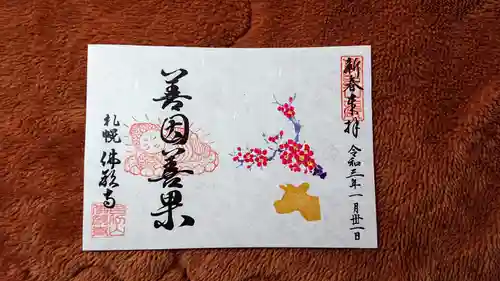 新春奉拝
令和三年一月卅一日
善因善果
札幌 佛願寺